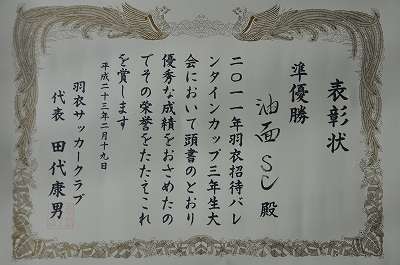 表彰状
準優勝
油面SC 殿
二〇一一年羽衣招待バレ
ンタインカップ三年生大
会において頭書のとおり
優秀な成績をおさめたの
でその栄誉をたたえこれ
を賞します
平成二十三年二月十九日
羽衣サッカークラブ
代表 田代康男